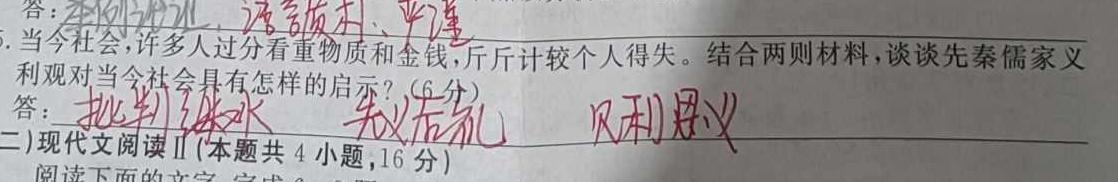 答:举例论证、语言质朴、严谨
5.当今社会,许多人过分看重物质和金钱,斤斤计较个人得失。结合两则材料,谈谈先秦儒家义
利观对当今社会具有怎样的启示?(6分)
答:批判继承 先义后利 见利思义
二)现代文阅读Ⅱ(本题共4小题,16分)
阅读下面的文字,完成